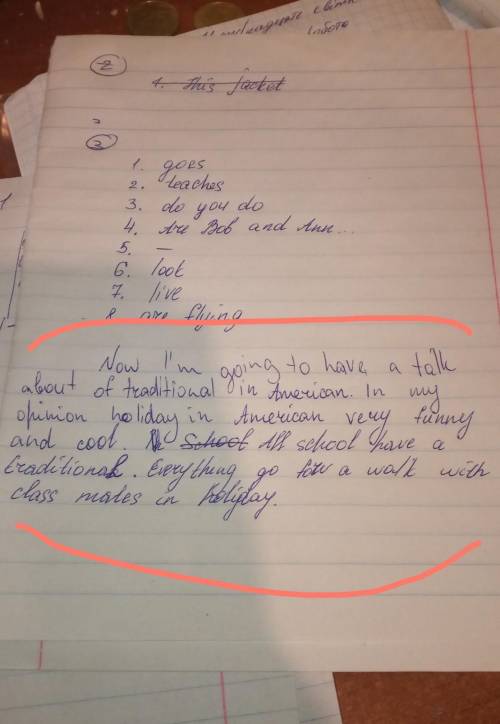 2
1. This jacket
3
1. goes
2. teaches
3. do you do
4. Are Bob and Ann...
5. —
6. look
7. live
8. are flying
Now I'm going to have a talk
about of traditional in American. In my
opinion holiday in American very funny
and cool. School All school have a
traditional. Everything go for a walk with
class mates in holiday.